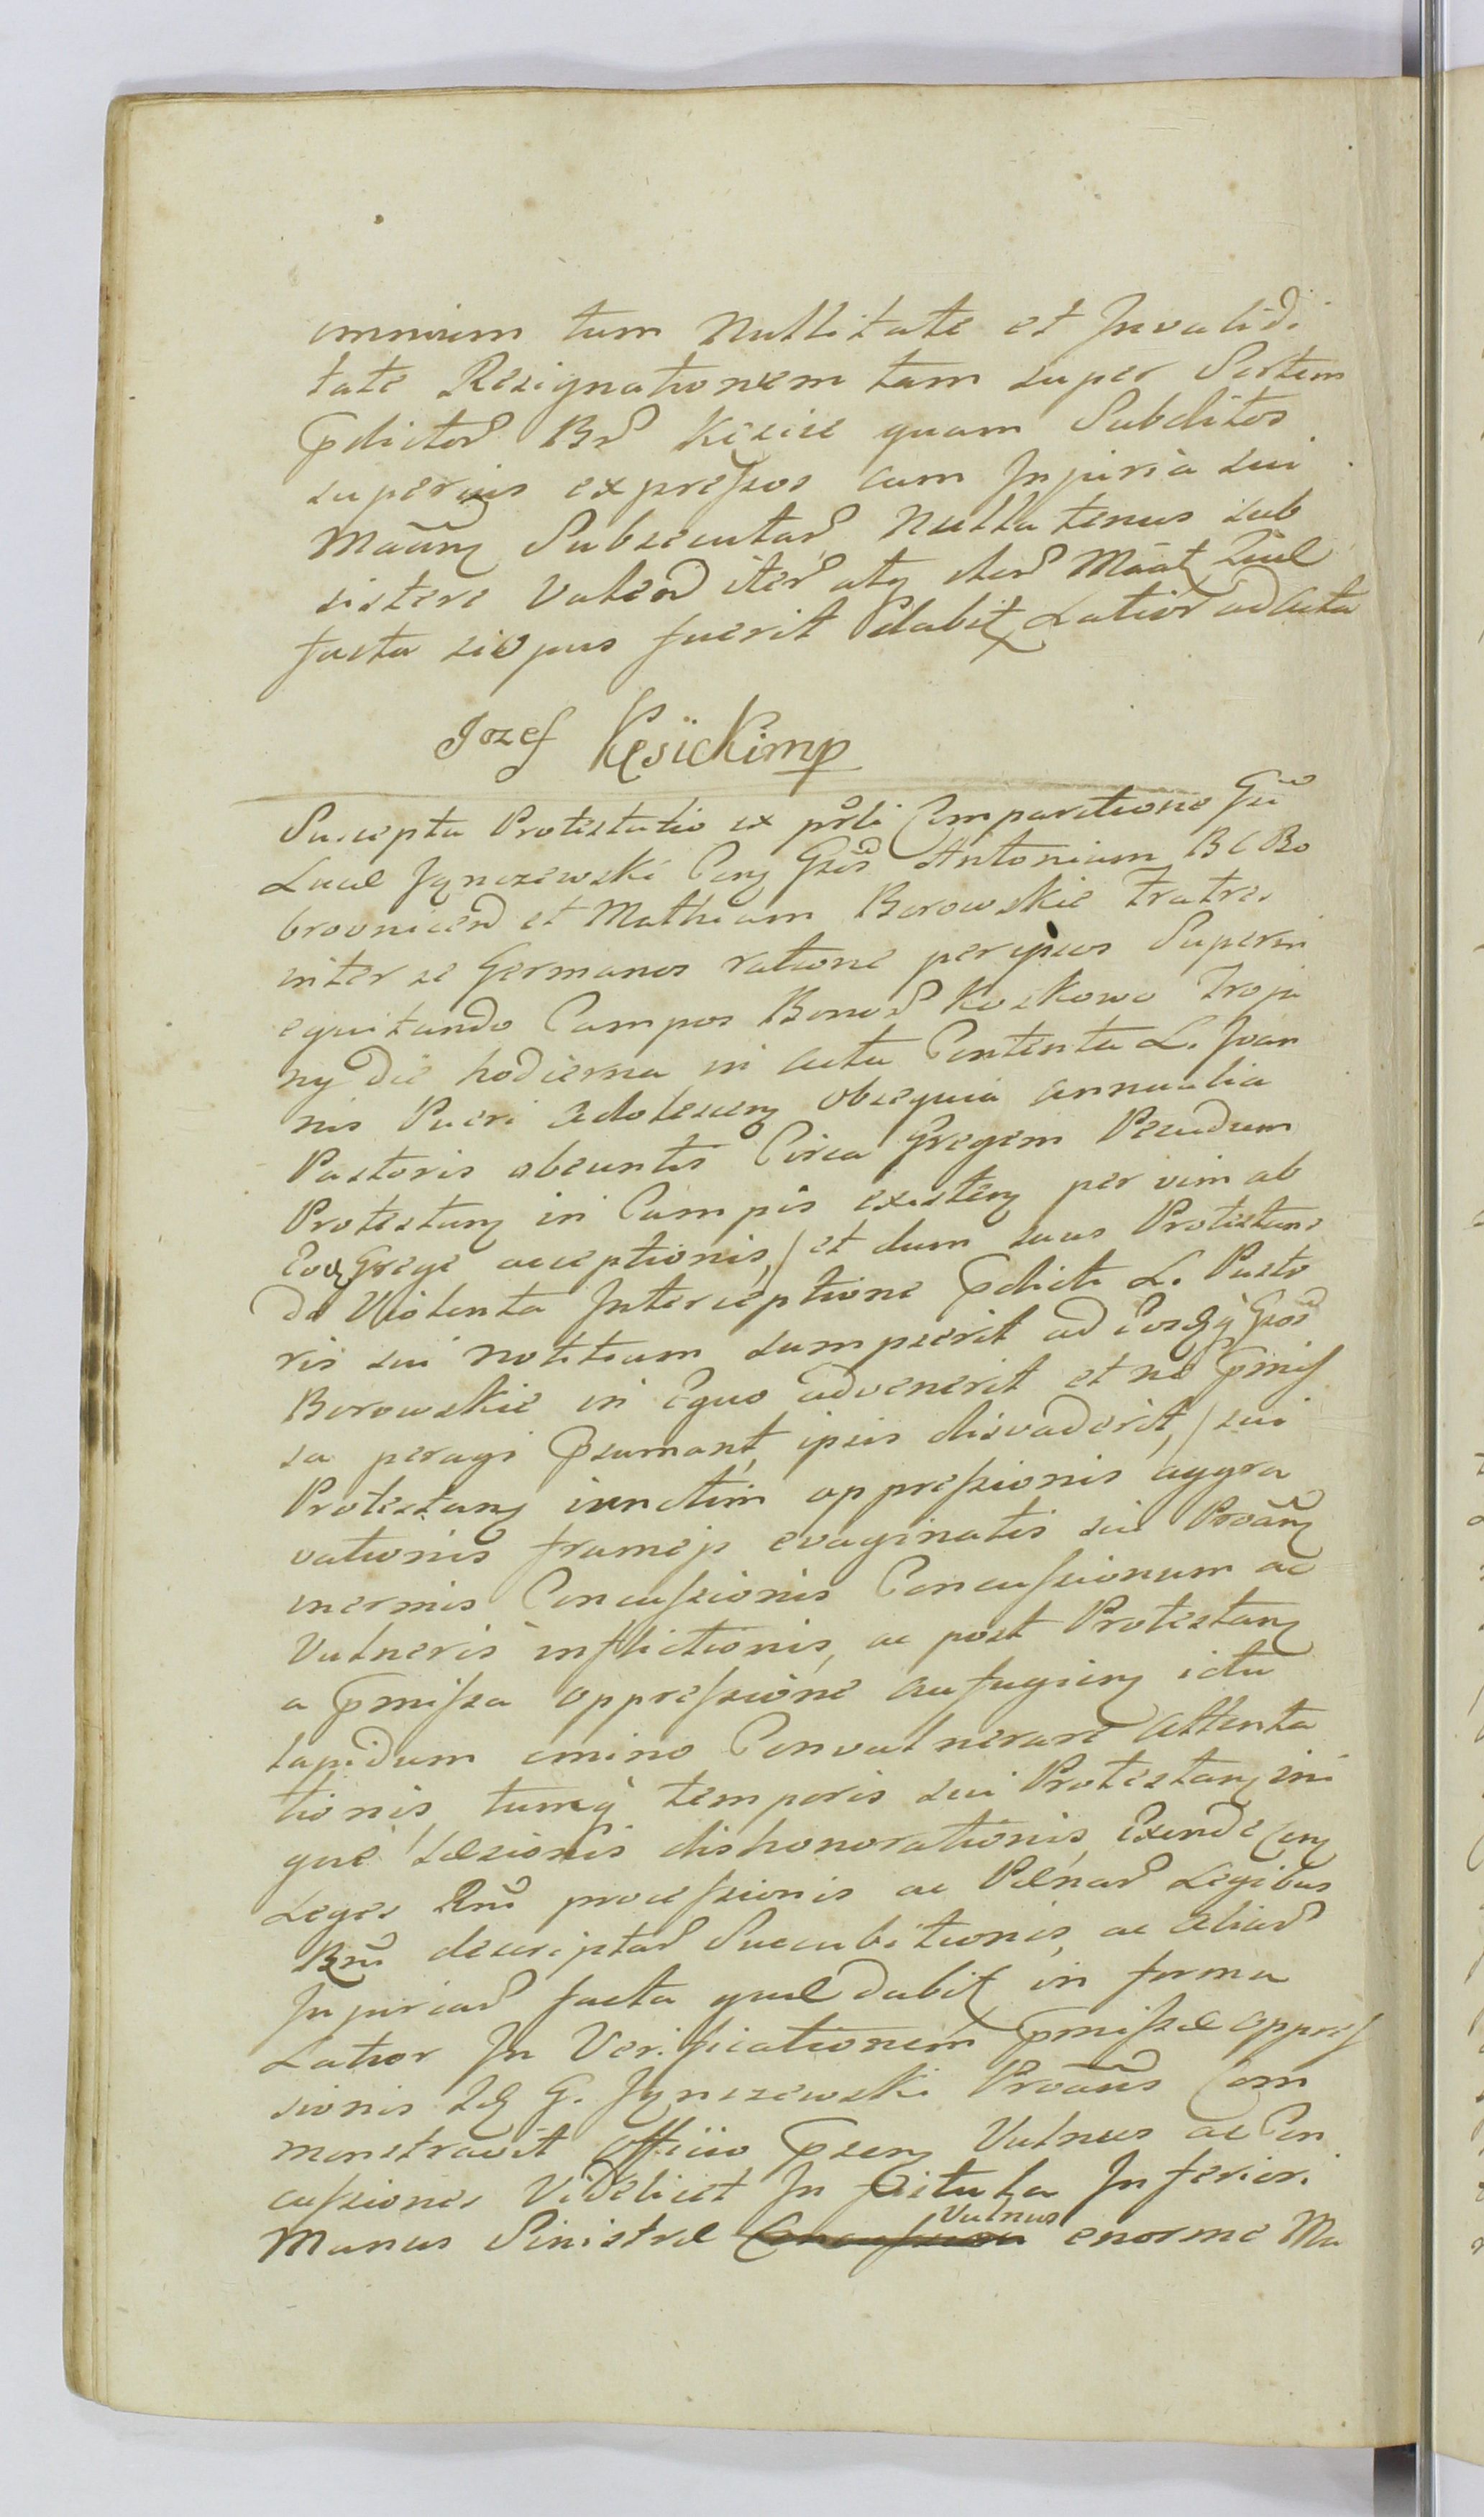 omnium tum Nullitate et Invalidi
tate Resignationem tam super Sortem
pdictor Br Kęsice quam Subditos
superius expressos cum Injuria sui
Maãnʒ Subsecutar Nullatenus sub
sistere Valen iter atq iter Maãt
facta si opus fuerit dabit Latior ad acta
Jozef Kęsicki mp
Suscepta Protestatio ex psli Comparitione Gsi
Lucæ Jynczewski Conʒ Gsos Antonium BC Bo
brovnicen et Mathiam Borowskie Fratres
inter se Germanos ratione per ipsos Superin
equitando Campos Bonor Koskowo Troja
ny die hodierna in acta Contenta L. Joan
nis Pueri adolescenʒ obsequia annualia
Pastoris obeuntis Circa Gregem Pecudum
Protestanʒ in Campis existenʒ per vim ab
Eodʒ Grege acceptionis, / et dum suus Protestans
de Violenta Interceptione pdicti L. Pasto
ris sui notitiam sumpserit ad Eosdʒ Gsos
Borowskie in Equo advenerit et ne pmis
sa peragi psumant, ipsis disvaderit, / sui
Protestanʒ iunctim oppressionis aggra
vationis frameis evaginatis sui Proãnʒ
inermis Concussionis Concussionum ac
Vulneris inflictionis, ac post Protestanʒ
a pmissa oppressione aufugienʒ ictu
lapidum emino Convulnerare attenta
tionis, tumq temporis sui Protestanʒ ini
què læsionis dishonorationis, Exinde Conʒ
Leges Rni processionis ac Pœnar Legibus
Rni descriptar Succubitionis, ac aliar
Injuriar facta quæ dabit in forma
Latior In Verificationem pmissæ oppres
sionis Idʒ G. Jynczewski Proãns Com
monstravit Officio psenʒ Vulnus ac Con
cussiones Videlicet In fistula Inferiori
Manus Sinistræ Vulnus enorme Ma